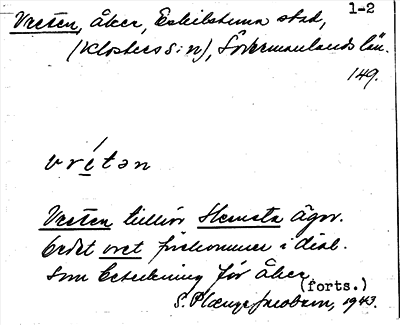 1-2
Vreten, åker, Eskilstuna stad,
(Klosters s:n), Södermanlands län.
149.
vrétən
Vreten tillhör Stensta ägor.
Ordet vret förekommer i dial.
som beteckning för åker
(forts.)
S. Plænge Jacobson, 1943.